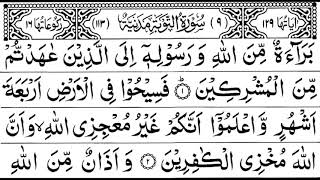 اٰیَاتُهَا ۱۲۹ (۹) سُوْرَةُ التَّوْبَةِ مَدَنِيَّةٌ (۱۱۳) رُكُوْعَاتُهَا ۱۶
بَرَآءَةٌ مِّنَ اللّٰهِ وَ رَسُوْلِهٖۤ اِلَى الَّذِيْنَ عٰهَدْتُّمْ
مِّنَ الْمُشْرِكِيْنَ ۱ فَسِيْحُوْا فِى الْاَرْضِ اَرْبَعَةَ
اَشْهُرٍ وَّ اعْلَمُوْۤا اَنَّكُمْ غَيْرُ مُعْجِزِى اللّٰهِ ۙ وَ اَنَّ
اللّٰهَ مُخْزِى الْكٰفِرِيْنَ ۲ وَ اَذَانٌ مِّنَ اللّٰهِ